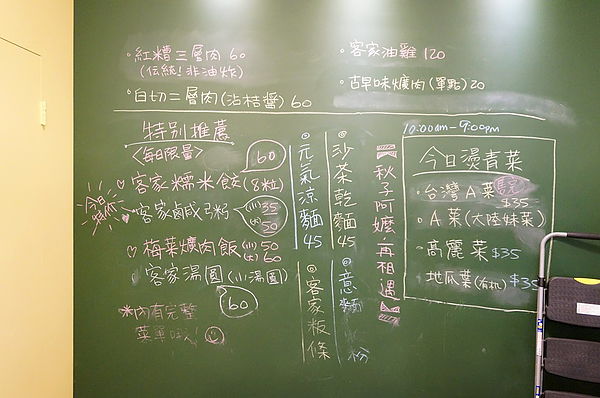 。紅糟三層肉 60
(伝統!非油炸)
。白切二層肉(沾桔醬) 60
。客家油雞 120
。古早味爌肉(單點) 20
特別推薦
<每日限量>
60
♡客家糯米餃(8粒)
今日特休
客家鹹粥
(小) 35
50
♡梅菜爌肉飯 (小) 50
(大) 60
客家湯圓(小湯圓)
60
*內有完整
菜單哦!
◎元氣涼麵 45
◎沙茶乾麵 45
◎客家粄條
◎意麵
粉
秋子阿嬤.再相遇
10:00am-9:00pm
今日燙青菜
。台灣A菜 $35
。A菜(大陸妹菜)
。高麗菜 $35
。地瓜葉(有机) $35